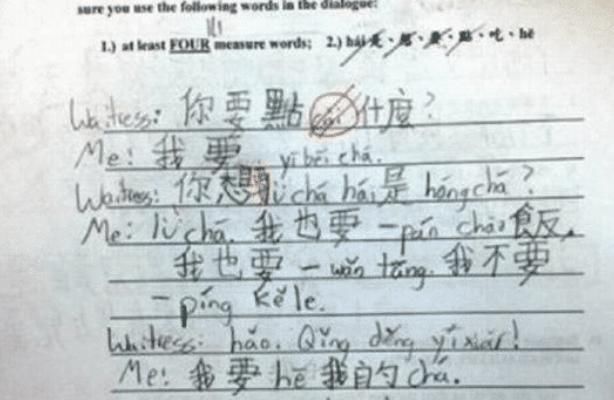 sure you use the following words in the dialogue:
1.) at least FOUR measure words; 2.) hái是、想、要、點、吃、hē
Waitress: 你要點cài什麼?
Me: 我要 yībēi chá.
Waitress: 你想lǜchá hái是hóngchá?
Me: lǜ chá. 我也要一pán chǎo飯,
我也要一wǎn tāng. 我不要
一píng kělè.
Waitress: hǎo. Qǐng děng yíxiàr!
Me: 我要hē我的chá.